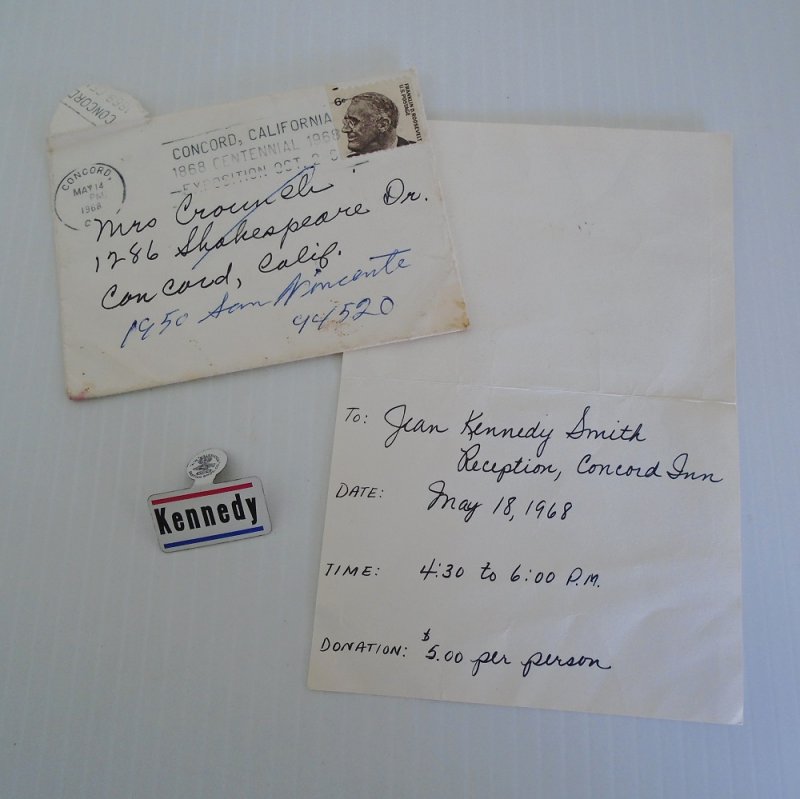 CONCORD
CONCORD, CALIFORNIA
1868 CENTENNIAL 1968
EXPOSITION OCT. 2
6¢
FRANKLIN D. ROOSEVELT
U.S. POSTAGE
CONCORD,
MAY 14
PM
1968
Mrs
1286 Shakespeare Dr.
Concord, Calif.
1950 San Vincente
94520
Kennedy
To: Jean Kennedy Smith
Reception, Concord Inn
DATE: May 18, 1968
TIME: 4:30 to 6:00 P.M.
DONATION: $5.00 per person